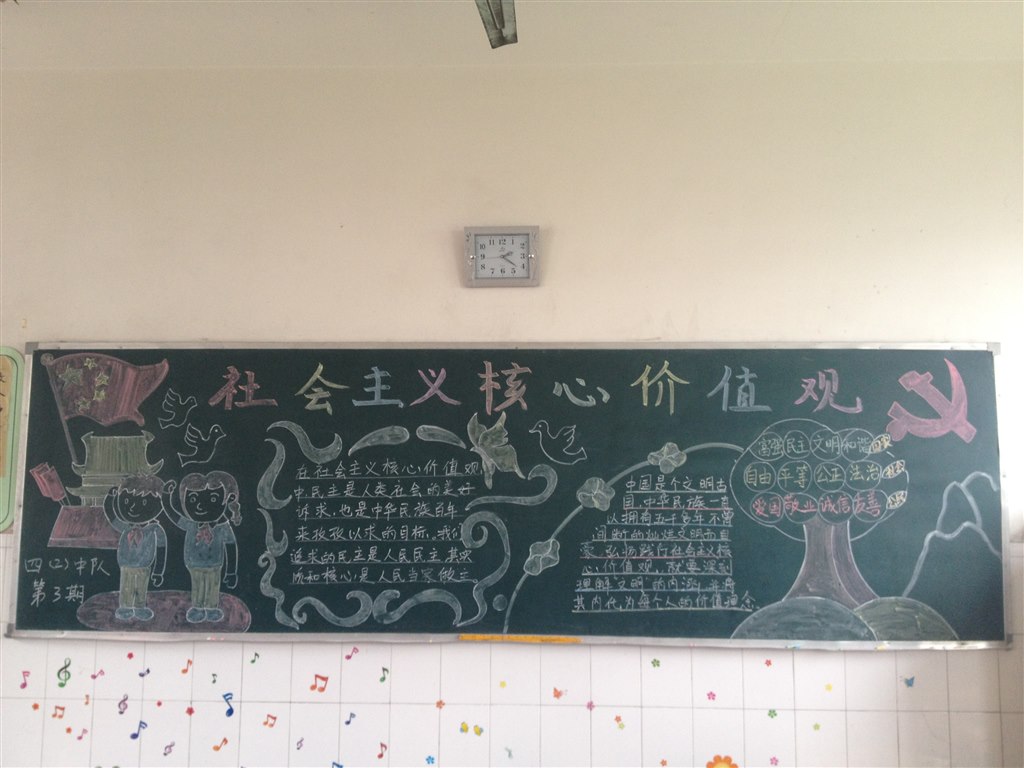 社会主义核心价值观
在社会主义核心价值观
中民主是人类社会的美好
诉求,也是中华民族百年
来孜孜以求的目标,我们
追求的民主是人民民主,其实
质和核心是人民当家做主
中国是个文明古
国,中华民族一直
以拥有五千多年不曾
间断的灿烂文明而自
豪,弘扬践行社会主义核
心价值观,就要深刻
理解"文明"的内涵,并将
其内化为每个人的价值理念
富强民主文明和谐
自由平等公正法治
爱国敬业诚信友善
四(2)中队
第3期
11 12 1
10 2
9 3
8 4
7 6 5